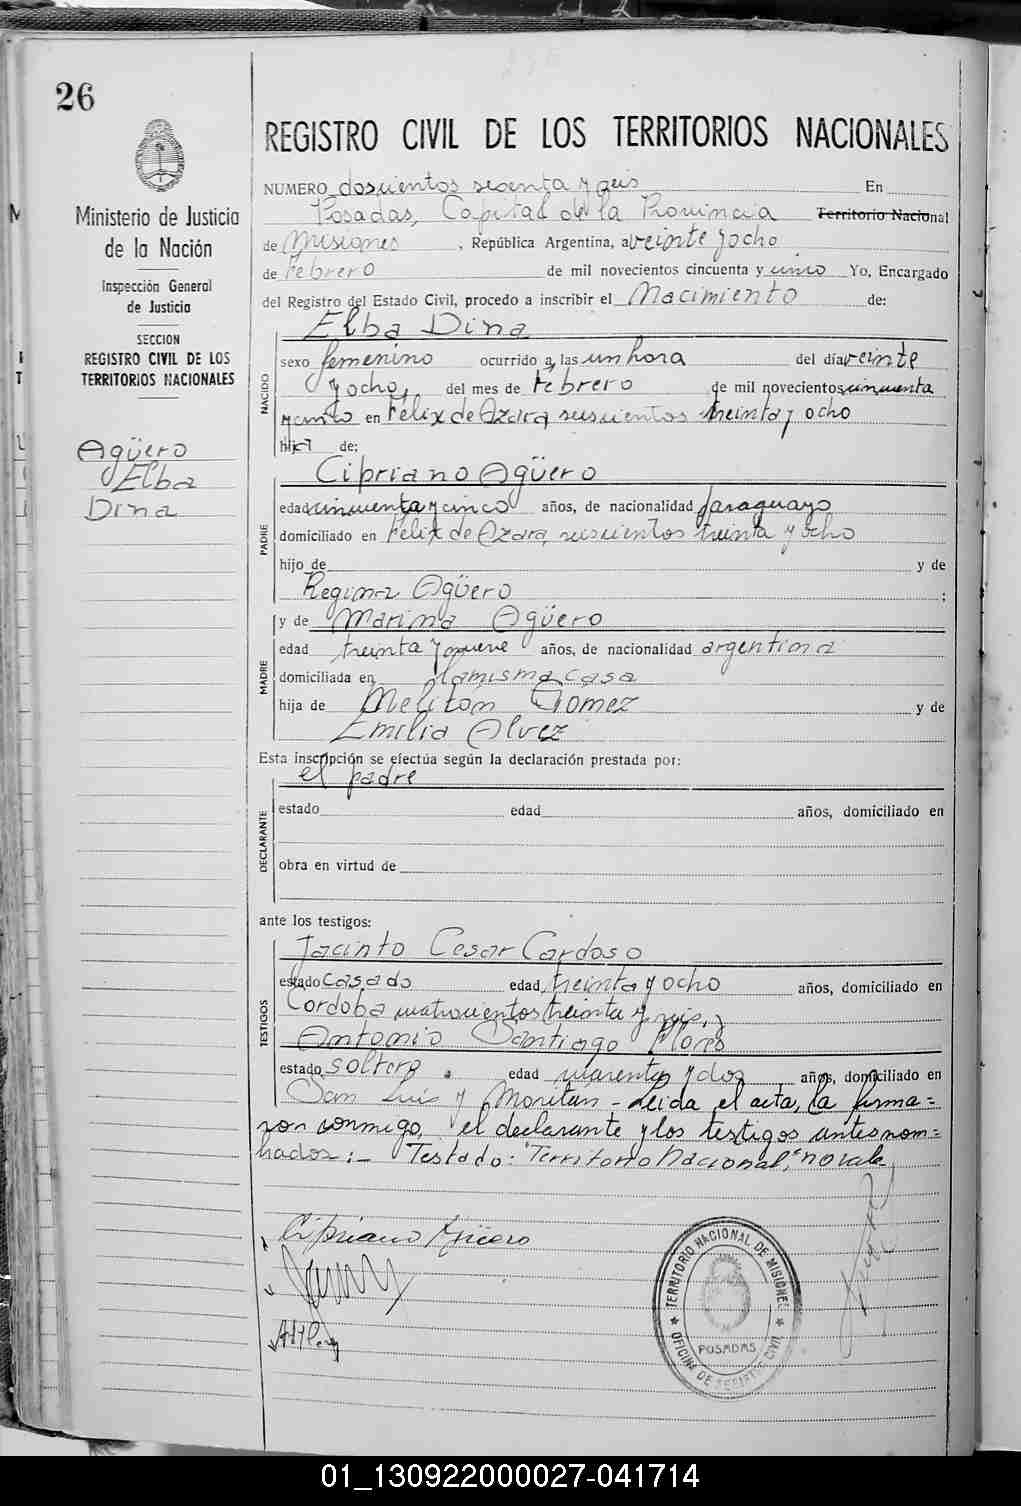 26
REGISTRO CIVIL DE LOS TERRITORIOS NACIONALES
Ministerio de Justicia
de la Nación
Inspección General
de Justicia
SECCION
REGISTRO CIVIL DE LOS
TERRITORIOS NACIONALES
Agüero
Elba
Dina
NUMERO doscientos sesenta y seis En
Posadas, Capital de la Provincia Territorio Nacional
de Misiones, República Argentina, a veinte y ocho
de Febrero de mil novecientos cincuenta y uno Yo, Encargado
del Registro del Estado Civil, procedo a inscribir el Nacimiento de:
NACIDO
Elba Dina
sexo femenino ocurrido a las un hora del día veinte
y ocho, del mes de Febrero de mil novecientos cincuenta
en Félix de Azara seiscientos treinta y ocho
hija de:
PADRE
Cipriano Agüero
edad cincuenta y cinco años, de nacionalidad paraguayo
domiciliado en Félix de Azara, seiscientos treinta y ocho
hijo de y de
Regina Agüero ;
MADRE
y de Marina Agüero
edad treinta y nueve años, de nacionalidad argentina
domiciliada en la misma casa
hija de Meliton Gomez y de
Emilia Alvez
Esta inscripción se efectúa según la declaración prestada por:
DECLARANTE
el padre
estado edad años, domiciliado en
obra en virtud de
ante los testigos:
TESTIGOS
Jacinto Cesar Cardoso
estado casado edad treinta y ocho años, domiciliado en
Cordoba cuatrocientos treinta y seis, y
Antonio Santiago Flores
estado soltero. edad cuarenta y dos años, domiciliado en
San Luis y - Leida el acta, la firma=
ron conmigo, el declarante y los testigos antes nom=
brados:- Testado: "Territorio Nacional," no vale
Cipriano Agüero
TERRITORIO NACIONAL DE MISIONES
POSADAS
OFICINA DE REGISTRO CIVIL
01_130922000027-041714